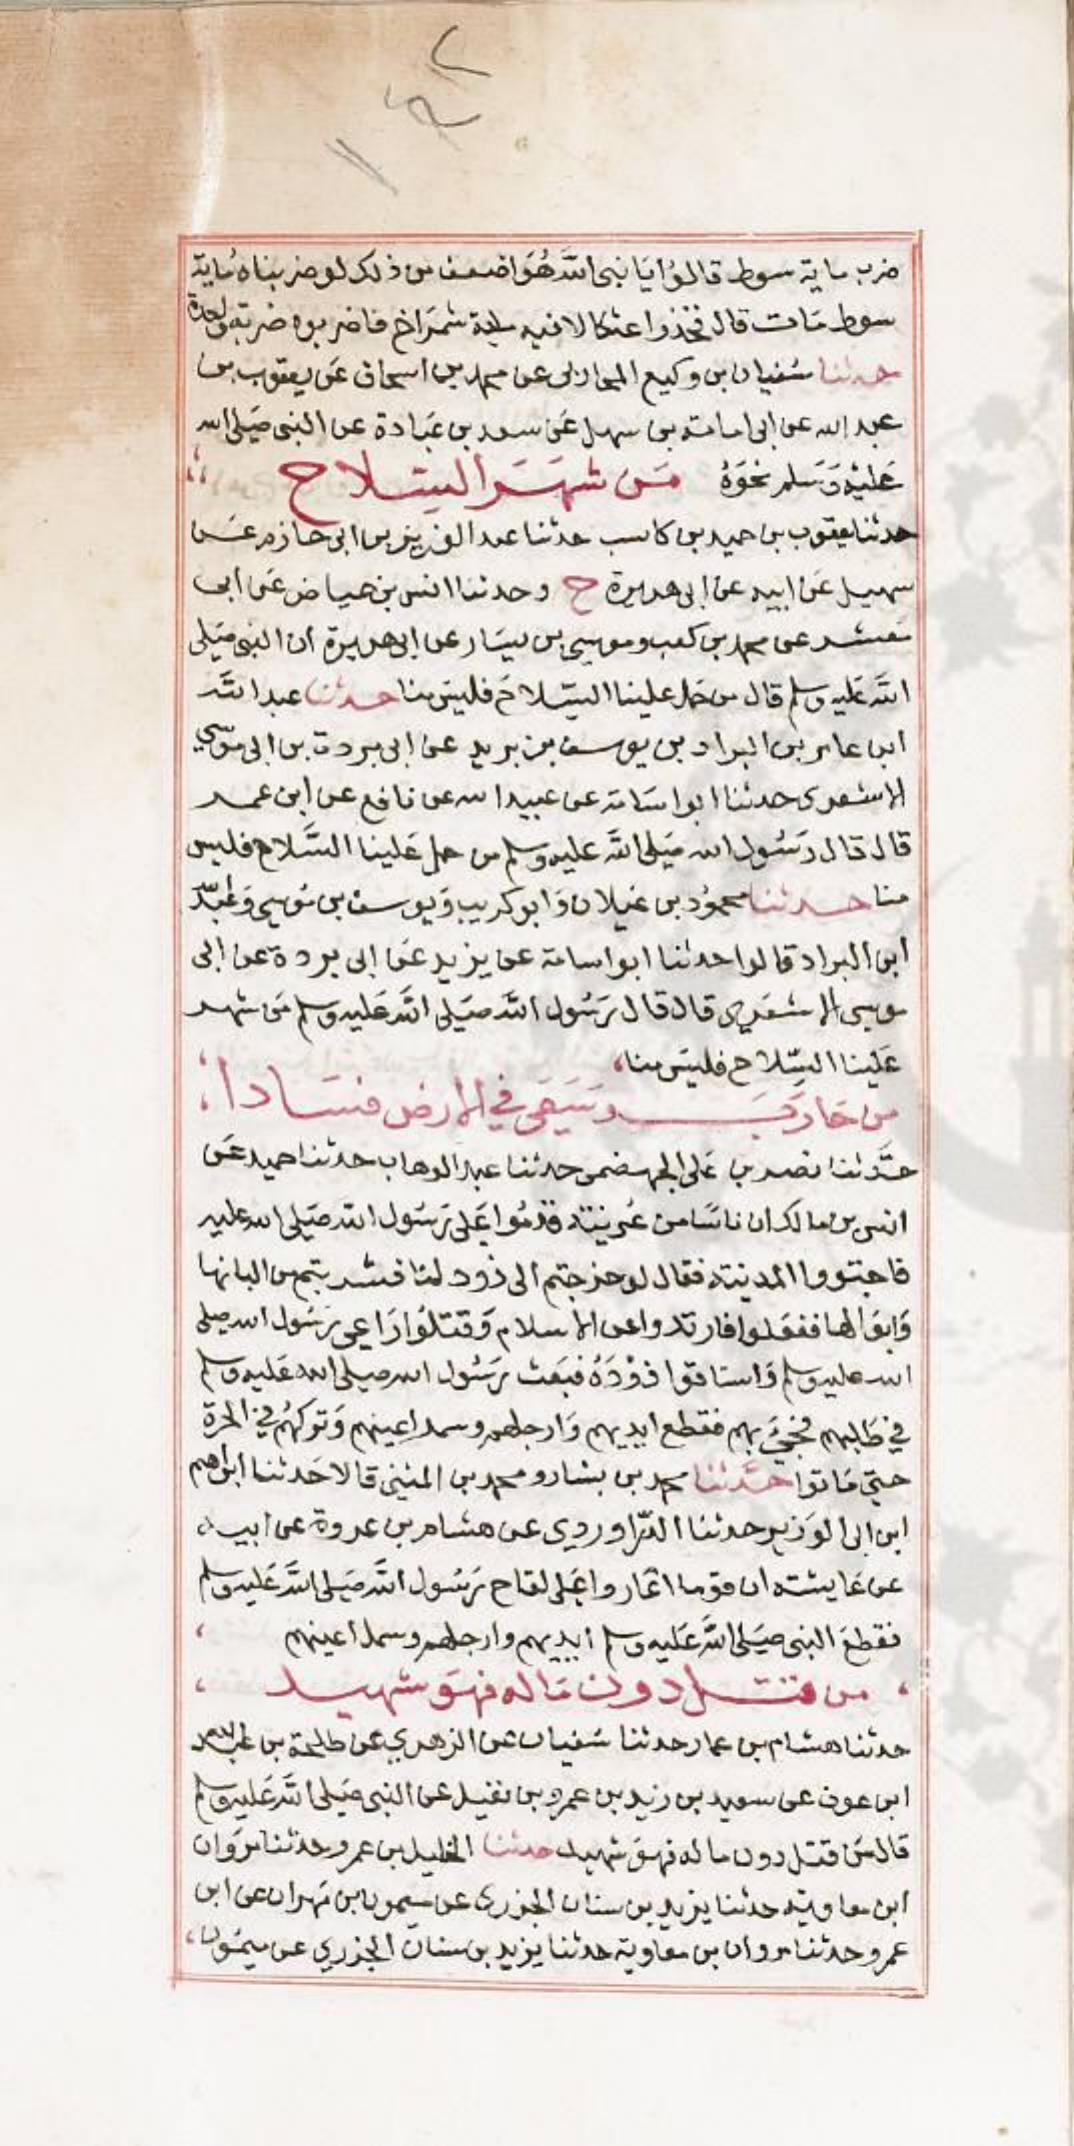 ضرب ماية سوط قالوا يا نبي الله هو اضعف من ذلك لو ضربناه ماية
سوط مات قال فخذوا عثكالا فيه ماية شمراخ فاضربوه ضربة واحدة
حدثنا سفيان بن وكيع المحاربي عن محمد بن اسحاق عن يعقوب بن
عبد الله عن ابي امامة بن سهل عن سعد بن عبادة عن النبي صلى الله
عليه وسلم نحوه من شهر السلاح
حدثنا يعقوب بن حميد بن كاسب حدثنا عبد العزيز بن ابي حازم عن
سهيل عن ابيه عن ابي هريرة ح وحدثنا انس بن عياض عن ابي
معشر عن محمد بن كعب وموسى بن يسار عن ابي هريرة ان النبي صلى
الله عليه وسلم قال من حمل علينا السلاح فليس منا حدثنا عبد الله
ابن عامر بن البراد بن يوسف بن بريد عن ابي بردة بن ابي موسي
الاشعري حدثنا ابو اسامة عن عبيد الله عن نافع عن ابن عمر
قال قال رسول الله صلى الله عليه وسلم من حمل علينا السلاح فليس
منا حدثنا محمود بن غيلان وابو كريب ويوسف بن موسي وعبد الله
ابن البراد قالوا حدثنا ابو اسامة عن يزيد عن ابي بردة عن ابي
موسى الاشعري قال قال رسول الله صلى الله عليه وسلم من شهر
علينا السلاح فليس منا
من حارب وسعى في الارض فسادا
حدثنا نصر بن على الجهضمي حدثنا عبد الوهاب حدثنا حميد عن
انس بن مالك ان ناسا من عرينة قدموا على رسول الله صلى الله عليه
فاجتووا المدينة فقال لو خرجتم الى ذود لنا فشربتم من البانها
وابوالها ففعلوا فارتدوا عن الاسلام وقتلوا راعي رسول الله صلى
الله عليه وسلم واستاقوا ذوده فبعث رسول الله صلى الله عليه وسلم
في طلبهم فجيء بهم فقطع ايديهم وارجلهم وسمل اعينهم وتركهم في الحرة
حتى ماتوا حدثنا محمد بن بشار ومحمد بن المثنى قالا حدثنا ابراهيم
ابن ابي الوزير حدثنا الدراوردي عن هشام بن عروة عن ابيه
عن عايشة ان قوما اغاروا على لقاح رسول الله صلى الله عليه وسلم
فقطع النبي صلى الله عليه وسلم ايديهم وارجلهم وسمل اعينهم
من قتل دون ماله فهو شهيد
حدثنا هشام بن عمار حدثنا سفيان عن الزهري عن طلحة بن عبد الله
ابن عوف عن سعيد بن زيد بن عمرو بن نفيل عن النبي صلى الله عليه وسلم
قال من قتل دون ماله فهو شهيد حدثنا الخليل بن عمرو حدثنا مروان
ابن معاوية حدثنا يزيد بن سنان الجزري عن ميمون بن مهران عن ابن
عمر وحدثنا مروان بن معاوية حدثنا يزيد بن سنان الجزري عن ميمون